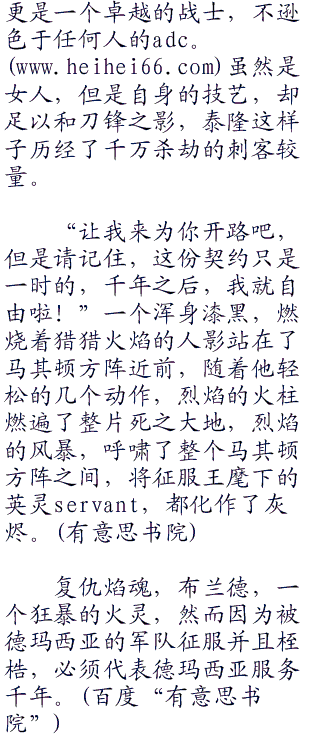 更是一个卓越的战士，不逊
色于任何人的adc。
(www.heihei66.com)虽然是
女人，但是自身的技艺，却
足以和刀锋之影，泰隆这样
子历经了千万杀劫的刺客较
量。
“让我来为你开路吧，
但是请记住，这份契约只是
一时的，千年之后，我就自
由啦！”一个浑身漆黑，燃
烧着猎猎火焰的人影站在了
马其顿方阵近前，随着他轻
松的几个动作，烈焰的火柱
燃遍了整片死之大地，烈焰
的风暴，呼啸了整个马其顿
方阵之间，将征服王麾下的
英灵servant，都化作了灰
烬。(有意思书院)
复仇焰魂，布兰德，一
个狂暴的火灵，然而因为被
德玛西亚的军队征服并且桎
梏，必须代表德玛西亚服务
千年。(百度“有意思书
院”)